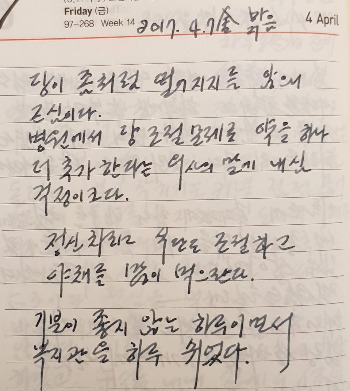 Friday (금)
97-268 Week 14
2017. 4. 7 金 맑음
4 April
당이 좀처럼 떨어지지를 않으니
근심이다.
병원에서 당 조절 문제로 약을 하나
더 추가한다는 의사의 말에 내심
걱정이 크다.
정신차리고 식단도 조절하고
야채를 많이 먹으란다.
기분이 좋지 않는 하루이면서
복지관을 하루 쉬었다.